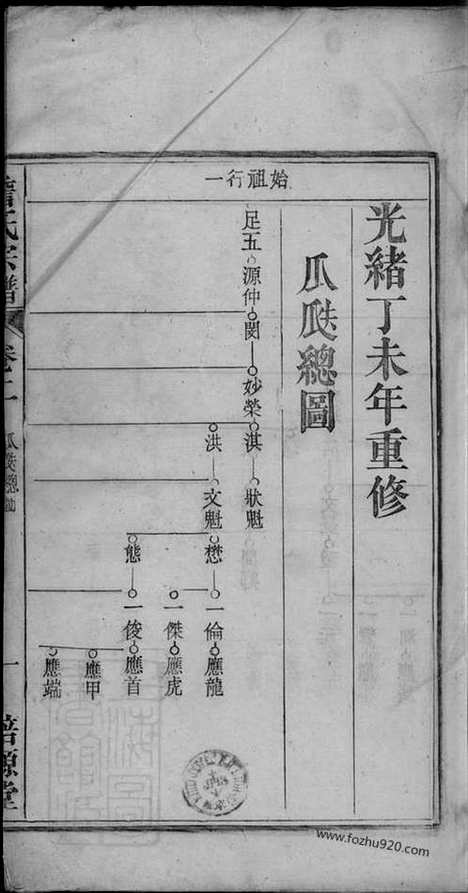 光緒丁未年重修
瓜瓞總圖
始祖行一
足五 源仲 閔一 妙榮 淇一 狀魁
洪一 文魁 懋一 一倫 應龍
一傑 應虎
熊一 一俊 應首
應甲
應端
氏宗譜 卷二 瓜瓞總圖 一
www.fozhu920.com